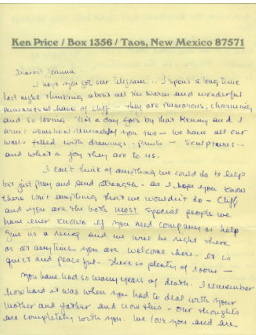 Ken Price / Box 1356 / Taos, New Mexico 87571
I hope you got our telegram... I spent a long time
last night thinking about all the warm and wonderful
have of Cliff - they are numerous, charming
and so loving. Not a day goes by that Kenny and I
you two - we have all our
walls filled with drawings - prints - sculptures -
and what a joy they are to us.
I can't think of anything we could do to help
but just pray and send strength - as I hope you know
there isn't anything that we wouldn't do - Cliff
and you are the both most special people we
have ever known. If you need company or help
give us a ring and we will be right there
or at any time you are welcome here. It is
quiet and peaceful. There's plenty of room -
You have had so many years of death. I remember
how hard it was when you had to deal with your
mother and father and now this - Our thoughts
are completely with you. We love you and are